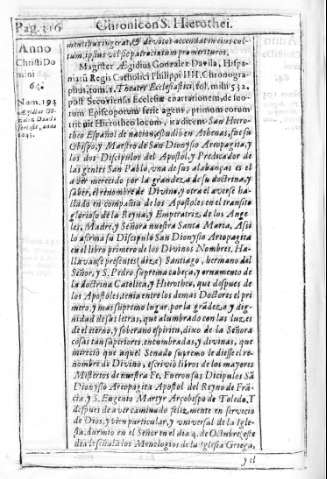 Pag. 316 Chronicon S. Hierothei.
Anno
Christi Do
mini
64.
Num. 193
Ægidius Gō
zalez Dauila
scripsit, anno
1645.
Magister Ægidius Gonzalez Davila, Hispa-
niarū Regis Catholici Philippi IIII. Chronogra-
phus, tom. 1. Theatri Ecclesiastici, fol. mihi 532.
post Secoviensis Ecclesiæ coarationem de loco-
rum Episcoporum serie agens, primum corum
tribuit Hierotheo locum, va dicen. San Hiero-
theo Español de nacion, estudiò en Athenas, fue su
Obispo, y Maestro de San Dionysio Areopagita, y
los dos Discipulos del Apostol, y Predicador de
las gentes San Pablo, vna de sus alabanças es el
aver merecido por la grandeza de su doctrina, y
saber, el renombre de Divino, y otra el averse ha-
llado en compañia de los Apostoles en el transito
glorioso de la Reyna, y Emperatriz de los Ange-
les, Madre, y Señora nuestra Santa Maria, Assi
lo afirma su Discipulo San Dionysio Areopagita
en el libro primero de los Divinos Nombres, Ha-
llavanse presentes (dize) Santiago, hermano del
Señor, y S. Pedro suprema cabeça, y ornamento de
la doctrina Catolica, y Hierotheo, que despues de
los Apostoles, tenia entre los demas Doctores el pri-
mero, y mas supremo lugar por la grādeza, y dig-
nidad de sus letras, que alumbrado con las luzes
de el eterno, y soberano espiritu, dixo de la Señora
cosas tan superiores, encumbradas, y divinas, que
mereciò que aquel Senado supremo le diesse el re-
nombre de Divino, escriviò libros de los mayores
Misterios de nuestra Fe, Fueron sus Dicipulos Sā
Dionysio Areopagita Apostol del Reyno de Frā-
cia, y S. Eugenio Martyr Arçobispo de Toledo, Y
despues de aver caminado felizmente en servicio
de Dios, y bien particular, y vniversal de la Igle-
sia, durmiò en el Señor en el dia 4. de Octubre, este
dia le señala los Menologios de la Iglesia Griega,
y el